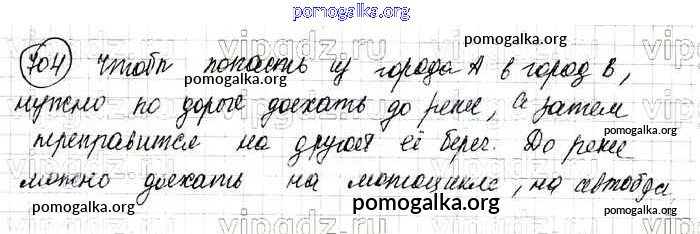 pomogalka.org
704 Чтобы попасть из города А в город В,
pomogalka.org
нужно по дороге доехать до реки, а затем
pomogalka.org
переправится на другой её берег. До реки
pomogalka.org
можно доехать на мотоцикле, на автобусе,
pomogalka.org pomogalka.org pomogalka.org